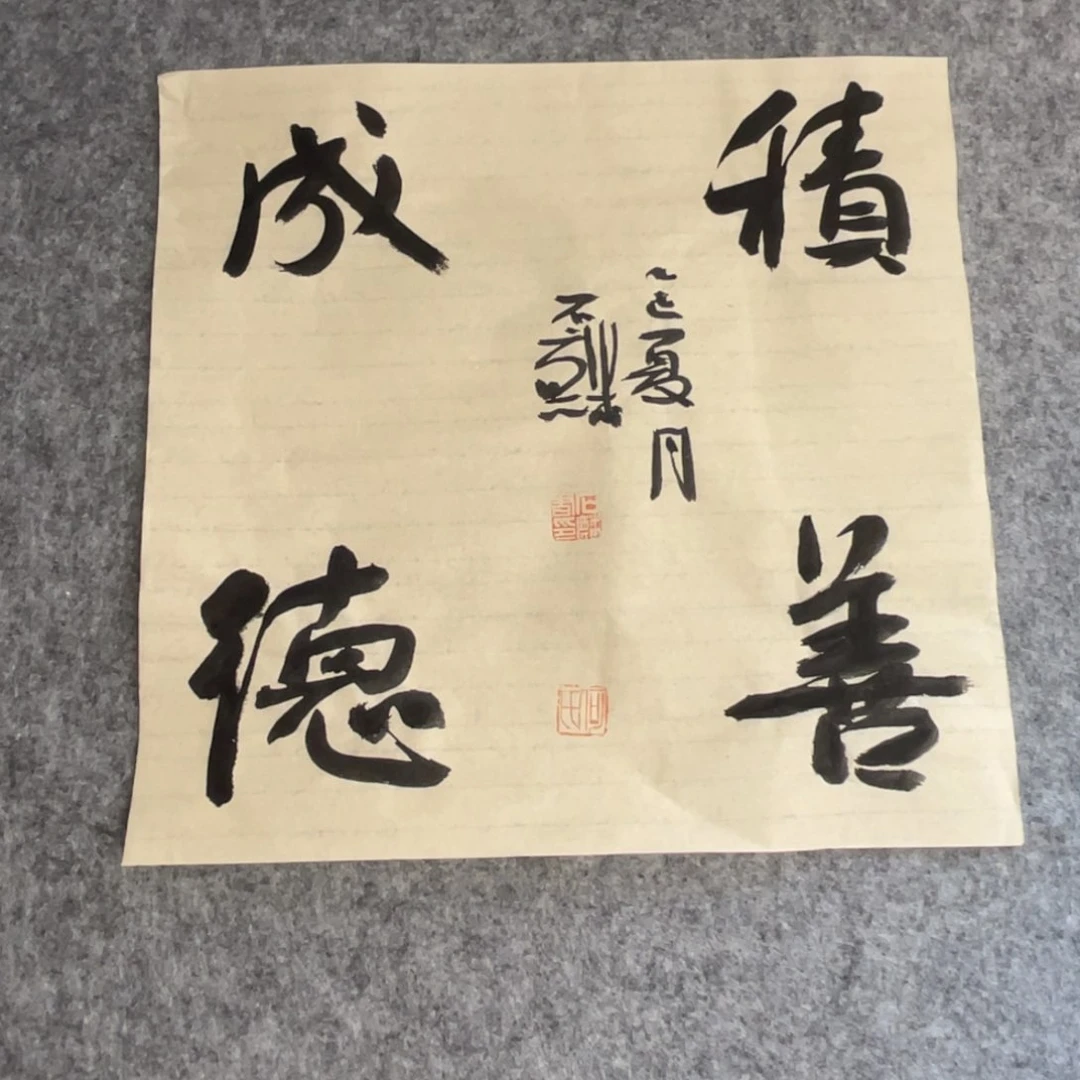 積善
成德
乙巳夏月
石